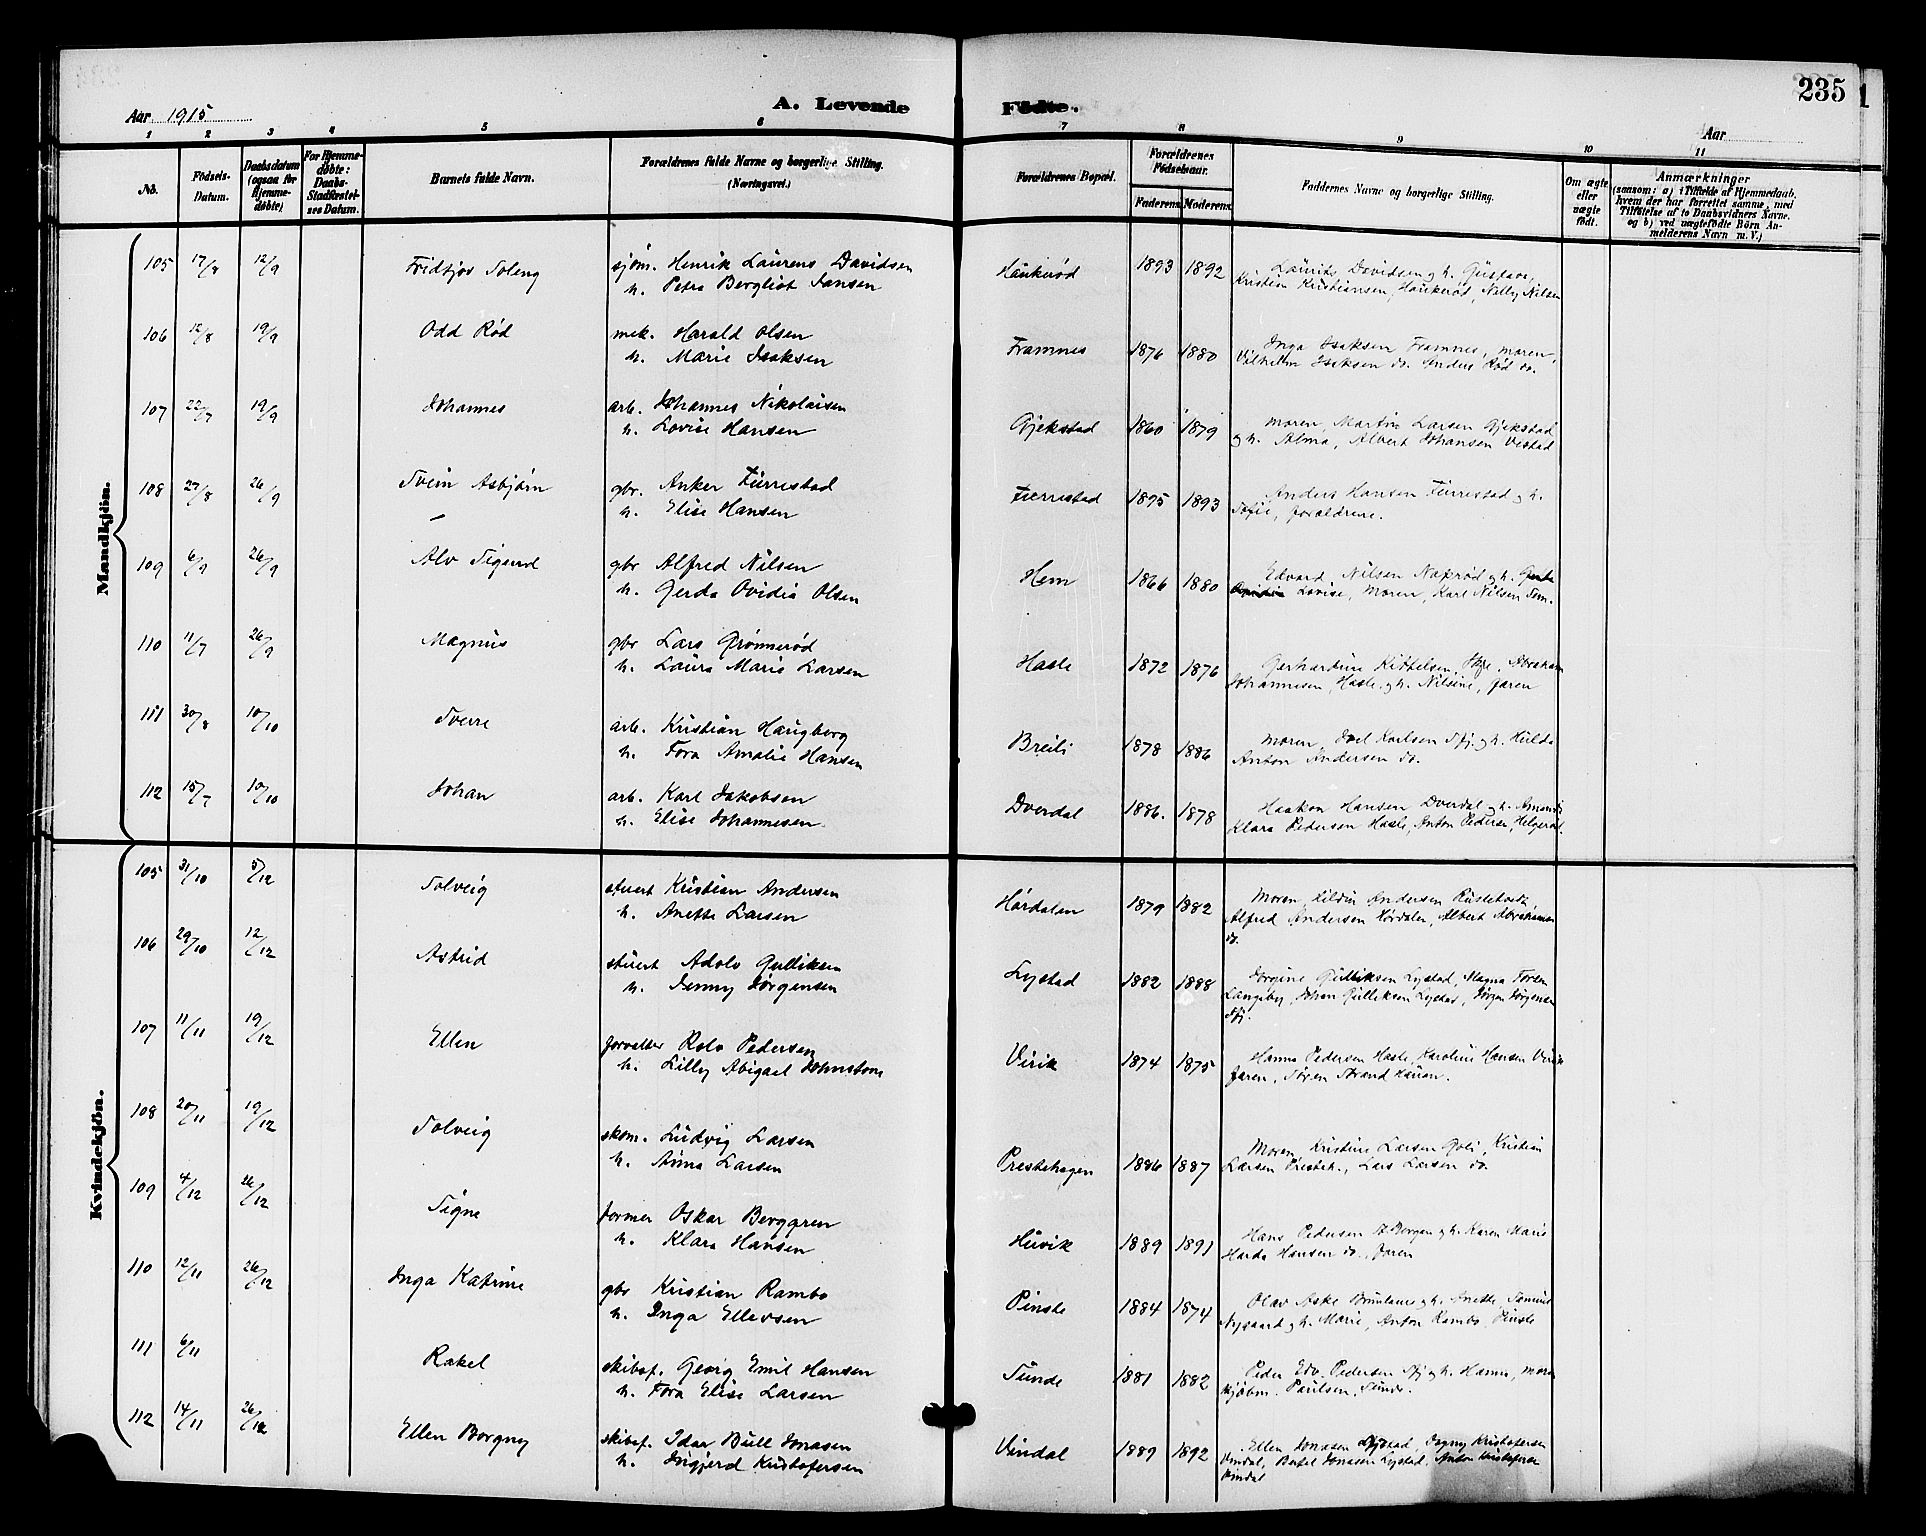 235
Aar 1915
A. Levende Fødte.
Aar
1 2 3 4 5 6 7 8 9 10 11
No.
Fødsels-Datum.
Daabsdatum (ogsaa for Hjemme-døbte)
For Hjemme-døbte: Daabs-Stadfæstel-ses Datum.
Barnets fulde Navn.
Forældrenes fulde Navne og borgerlige Stilling. (Næringsvei.)
Forældrenes Bopæl.
Forældrenes Fødselsaar.
Faderens Moderens
Faddernes Navne og borgerlige Stilling.
Om ægte eller uægte født.
Anmærkninger
(saasom: a) i Tilfælde af Hjemmedaab, hvem der har forrettet samme, med Tilføielse af to Daabsvidners Navne, og b) ved uægtefødte Børn An-melderens Navn m. V.)
Mandkjön.
105 17/8 12/9 Fridtjov Soleng sjøm. Henrik Laurens Davidsen Haukerød 1893 1892 Laurits Davidsen og h. Gustava,
h. Petra Bergliot Jansen Kristian Kristiansen, Haukerød, Nelly Nilsen
106 12/8 19/9 Odd Rød mek. Harald Olsen Framnes 1876 1880 Inga Isaksen Framnes, moren,
h. Marie Isaksen Vilhelm Isaksen do. Anders Rød do.
107 22/7 19/9 Johannes arb. Johannes Nikolaisen Gjekstad 1860 1879 moren, Martin Larsen Gjekstad
h. Lovise Hansen og h. Alma, Albert Johansen Vestad
108 27/8 26/9 Svein Asbjørn gbr. Anker Furrestad Furrestad 1895 1893 Anders Hansen Furrestad og h.
h. Elise Hansen Sofie, forældrene.
109 6/9 26/9 Alv Sigurd gbr Alfred Nilsen Hem 1866 1880 Edvard Nilsen Naprød og h.
h. Gerda Ovidia Olsen Lovise, Moren, Karl Nilsen
110 11/7 26/9 Magnus gbr Lars Grønnerød Hasle 1872 1876 Gerhardine Kittelsen, Abraham
h. Laura Marie Larsen Johannesen, Hasle og h. Nilsine, faren
111 30/8 10/10 Sverre arb. Kristian Haugberg Breili 1878 1886 moren, Joel Karlsen Sfj. og h. Hulda
h. Tora Amalie Hansen Anton Andersen do.
112 15/7 10/10 Johan arb. Karl Jakobsen Dverdal 1886. 1878 Haakon Hansen Dverdal og h. Amanda
h. Elise Johannesen. Klara Pedersen Hasle, Anton Pedersen, Helgerød.
Kvindekjön.
105 31/10 5/12 Solveig stuert Kristian Andersen Hørdalen 1879 1882 Moren, Andersen
h. Anette Larsen Alfred Andersen Hørdalen, Albert Abrahamsen
do.
106 29/10 12/12 Astrid stuert Adolv Gulliksen Lystad 1882 1888 Jørgine Gulliksen Lystad, Magna
h. Jenny Jørgensen Langeby, Johan Gulliksen Lystad, Jørgen Jørgensen
Sfj.
107 11/11 19/12 Ellen forvalter Rolv Pedersen Virik 1874 1875 Hanna Pedersen Hasle, Karoline Hansen Virik
h. Lilly Abigael Johnstone faren, Søren Strand Hauan.
108 20/11 19/12 Solveig skom. Ludvig Larsen Prestehagen 1886 1887 Moren, Kristine Larsen Goli, Kristian
h. Anna Larsen Larsen Presteh., Lars Larsen do.
109 4/12 26/12 Signe former Oskar Berggren Huvik 1889 1891 Hans Pedersen St. Bergan og h. Karen Marie
h. Klara Hansen Harda Hansen do. faren
110 12/11 26/12 Inga Katrine gbr Kristian Rambo Pinsle 1884 1874 Olav Aske Brunlanes og h. Anette, Samuel
h. Inga Ellevsen Nygaard og h. Marie, Anton Rambo, Pinsle
111 6/11 Rakel skibsf. Georg Emil Hansen Sunde 1881 1882 Peder Edv. Pedersen Sfj og h. Hanna, moren
h. Tora Elise Larsen kjøbm. Paulsen, Sunde.
112 14/11 26/12 Ellen Borgny skibsf. Idar Bull Jonasen Vindal 1889 1892 Ellen Jonasen Lystad, Dagny Kristofersen
h. Ingjerd Kristofersen Vindal, Bertel Jonasen Lystad, Anton Kristofersen
Vindal